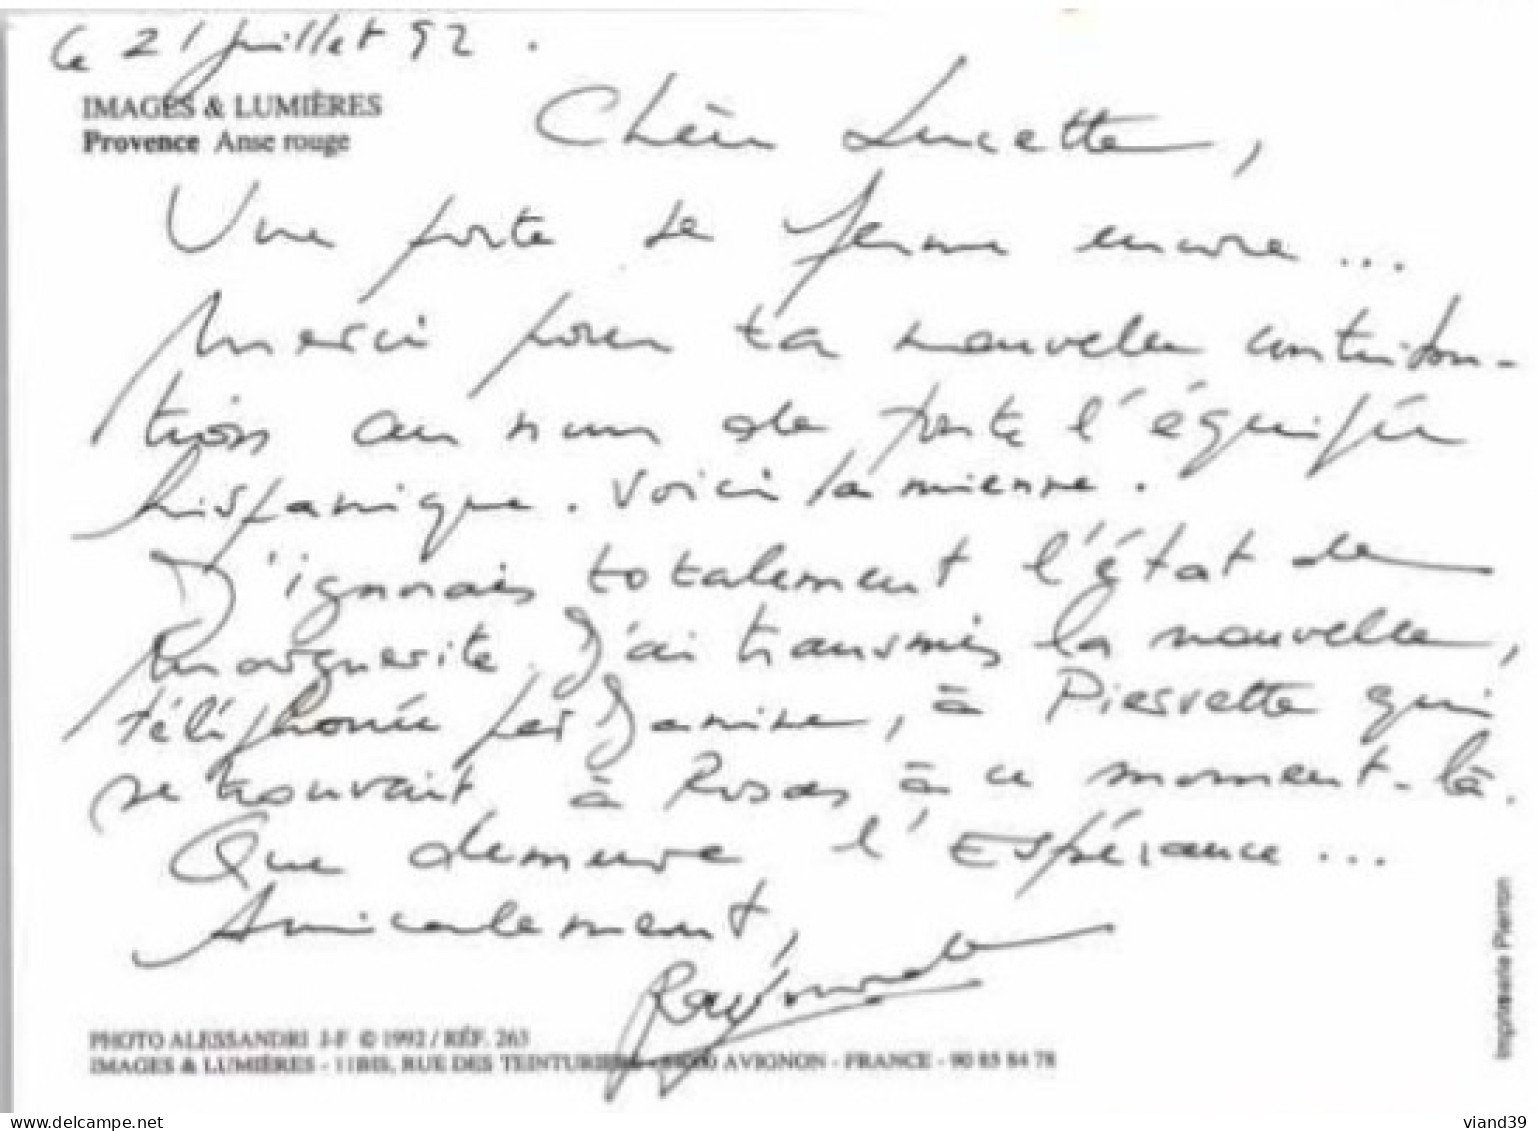 Le 21 Juillet 92.
IMAGES & LUMIÈRES
Provence Anse rouge
Chère Lucette,
Une porte se ferme encore...
Merci pour ta nouvelle contribu-
tion au nom de toute l'équipée
hispanique. Voici la mienne.
J'ignorais totalement l'état de
Marguerite. J'ai transmis la nouvelle,
téléphonée par Janine, à Pierrette qui
se trouvait à Rosas à ce moment-là.
Que demeure l'Espérance...
Amicalement,
Raymonde
PHOTO ALESSANDRI J-F © 1992 / RÉF. 263
IMAGES & LUMIÈRES - 11BIS, RUE DES TEINTURIERS - 84000 AVIGNON - FRANCE - 90 85 84 78
Imprimerie Pierron
viand39
delcampe.net